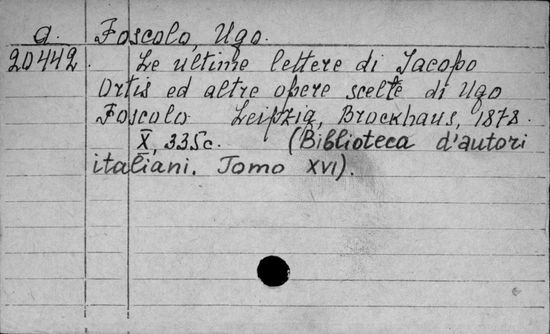 a. Foscolo, Ugo.
20442. Le ultime lettere di Jacopo
Ortis ed altre opere scelte di Ugo
Foscolo Leipzig, Brockhaus, 1878.
X, 335c. (Biblioteca d'autori
italiani. Tomo XVI).